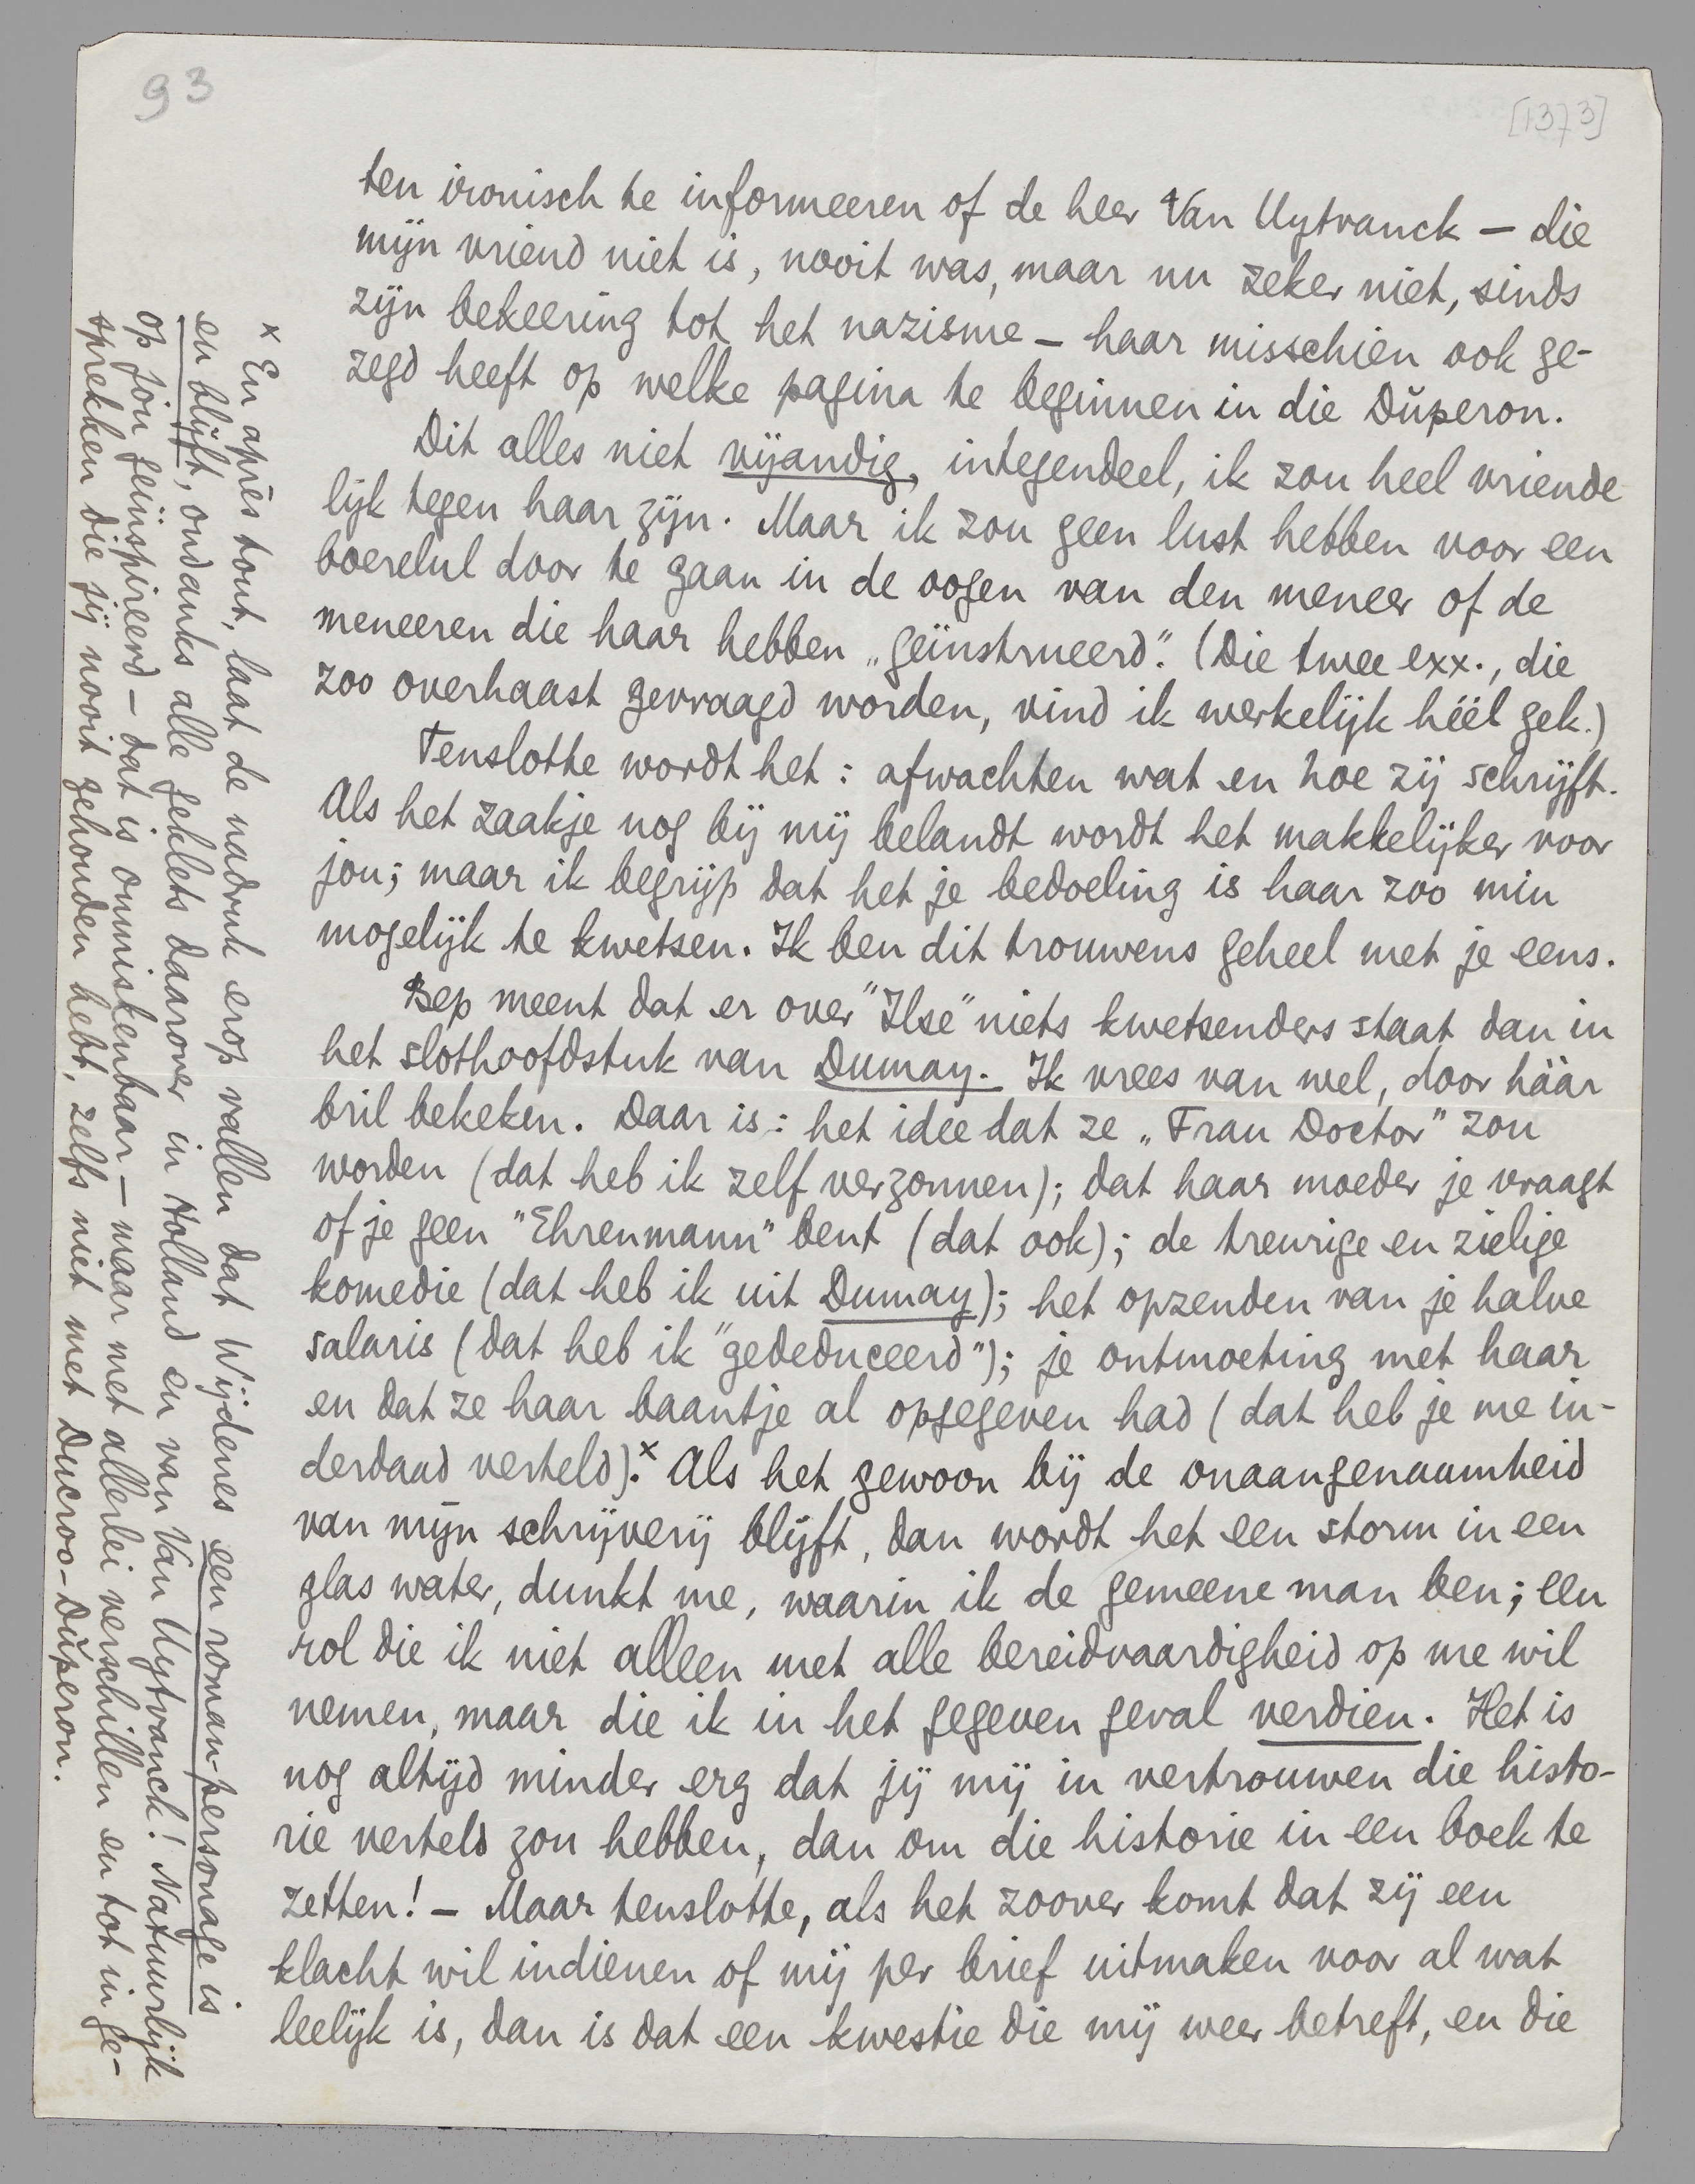 93
[1373]
ten ironisch te informeeren of de heer Van Uytvanck — die
mijn vriend niet is, nooit was, maar nu zeker niet, sinds
zijn bekeering tot het nazisme — haar misschien ook ge-
zegd heeft op welke pagina te beginnen in die Dŭperon.
Dit alles niet vijandig, integendeel, ik zou heel vriende
lijk tegen haar zijn. Maar ik zou geen lust hebben voor een
boerelul door te gaan in de oogen van den meneer of de
meneeren die haar hebben „geïnstrueerd". (Die twee exx., die
zoo overhaast gevraagd worden, vind ik werkelijk héél gek.)
Tenslotte wordt het: afwachten wat en hoe zij schrijft.
Als het zaakje nog bij mij belandt wordt het makkelijker voor
jou; maar ik begrijp dat het je bedoeling is haar zoo min
mogelijk te kwetsen. Ik ben dit trouwens geheel met je eens.
Bep meent dat er over "Ilse" niets kwetsenders staat dan in
het slothoofdstuk van Dumay. Ik vrees van wel, door háár
bril bekeken. Daar is: het idee dat ze „Frau Doctor" zou
worden (dat heb ik zelf verzonnen); dat haar moeder je vraagt
of je geen "Ehrenmann" bent (dat ook); de treurige en zielige
komedie (dat heb ik uit Dumay); het opzenden van je halve
salaris (dat heb ik "gededuceerd"); je ontmoeting met haar
en dat ze haar baantje al opgegeven had (dat heb je me in-
derdaad verteld).x Als het gewoon bij de onaangenaamheid
van mijn schrijverij blijft, dan wordt het een storm in een
glas water, dunkt me, waarin ik de gemeene man ben; een
rol die ik niet alleen met alle bereidvaardigheid op me wil
nemen, maar die ik in het gegeven geval verdien. Het is
nog altijd minder erg dat jij mij in vertrouwen die histo-
rie verteld zou hebben, dan om die historie in een boek te
zetten! — Maar tenslotte, als het zoover komt dat zij een
klacht wil indienen of mij per brief uitmaken voor al wat
leelijk is, dan is dat een kwestie die mij weer betreft, en die
x En après tout, laat de nadruk erop vallen dat Wijdenes een roman-personage is
en blijft, ondanks alle geklets daarover in Holland en van Van Uytvanck! Natuurlijk
op jou geïnspireerd — dat is onmiskenbaar — maar met allerlei verschillen en tot in ge-
sprekken die jij nooit gehouden hebt, zelfs niet met Ducroo-Dŭperon.